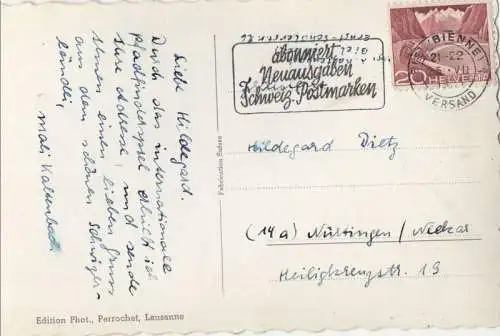 Liebe Hildegard.
Durch das internationale
Pfadfinderspiel erhielt ich
Ihre Adresse, und sende
Ihnen einen lieben Gruss
aus dem schönen Schweizer-
ländli,
Ernst-Schüler
Biel
abonniert
Neuausgaben
Schweiz. Postmarken
BIENNE 1
21-22
VII
VERSAND
20 HELVETIA
Hildegard Dietz
(14a) Nürtingen/Neckar
Heiligkreuzstr. 19
Fabrication Suisse
Edition Phot., Perrochet, Lausanne